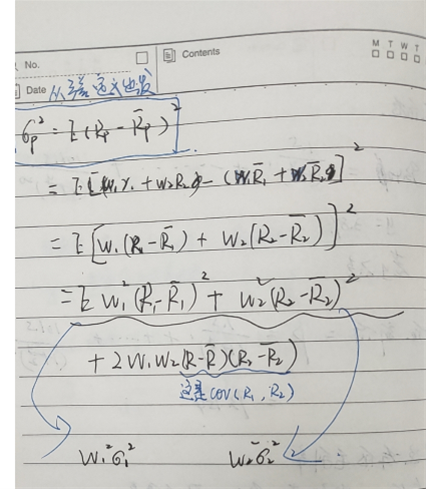 No. Contents M T W T
Date 从方差定义出发
σp² = E(Rp - R̄p)²
= E[w₁r₁ + w₂R₂ - (w₁R̄₁ + w₂R̄₂)]²
= E[w₁(R₁-R̄₁) + w₂(R₂-R̄₂)]²
= E w₁²(R₁-R̄₁)² + w₂²(R₂-R̄₂)²
+ 2w₁w₂(R-R̄)(R₂-R̄₂)
这是cov(R₁,R₂)
w₁²σ₁² w₂²σ₂²